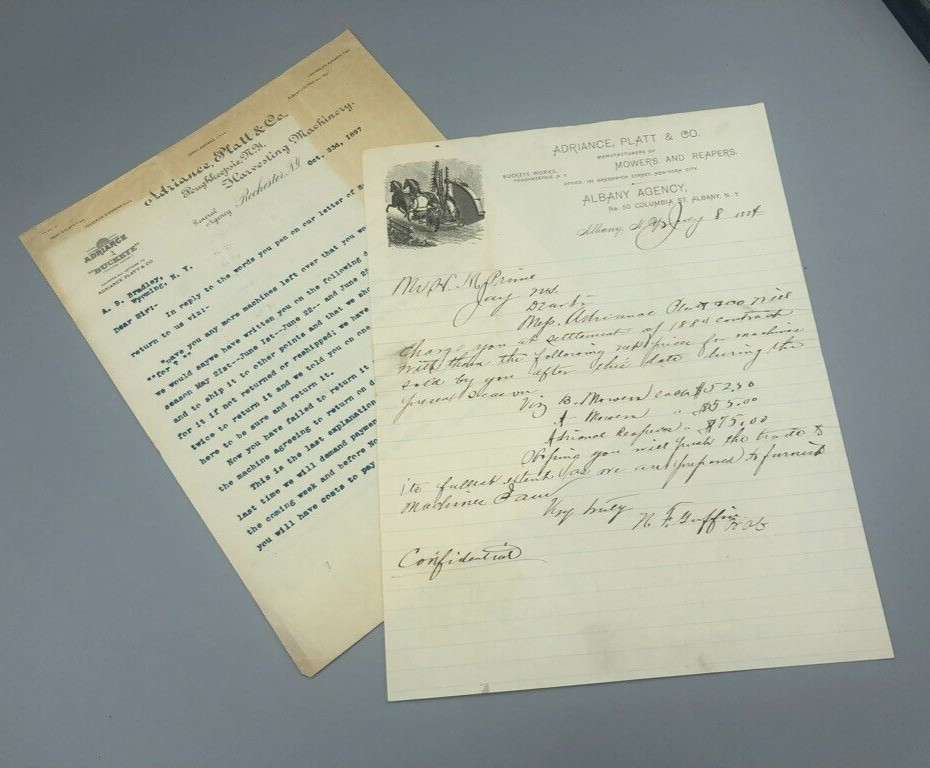 Adriance, Platt & Co.
Poughkeepsie, N.Y.
Harvesting Machinery.
General Agency
Rochester, N.Y. Oct. 23d, 1897
ADRIANCE
"BUCKEYE"
ADRIANCE, PLATT & CO.
A. Bradley,
Wyoming, N. Y.
Dear Sir:-
In reply to the words you pen on our letter of
return to us viz:-
"have you any more machines left over that you
"for ?""
we would say we have written you on the following
season May 21st--June 1st--June 22-- and June 25
and to ship it to other points and that we
for it if not returned or reshipped; we have
twice to return it and we told you on one
here to be sure and return it.
Now you have failed to return it
the machine agreeing to return on
This is the last explanation
last time we will demand payment
the coming week and before No
you will have costs to pay
ADRIANCE, PLATT & CO.
MANUFACTURERS OF
MOWERS AND REAPERS.
BUCKEYE WORKS,
POUGHKEEPSIE, N. Y.
OFFICE, 165 GREENWICH STREET, NEW-YORK CITY.
ALBANY AGENCY,
No. 50 COLUMBIA ST. ALBANY, N. Y.
Albany, N. Y. July 8 1884
Mr. H. M. Prime
Jay N.Y.
Dear Sir
Mess. Adriance Platt & Co will
charge you at settlement of 1884 contract
with them the following net prices for machines
sold by you after this date during the
present season
Viz B. Mowers each $52.50
A- Mowers " $55.00
Adriance Reapers " $75.00
Hoping you will push the trade to
its fullest extent, as we are prepared to furnish
machines
Very truly
N. F. Guffin
Confidential